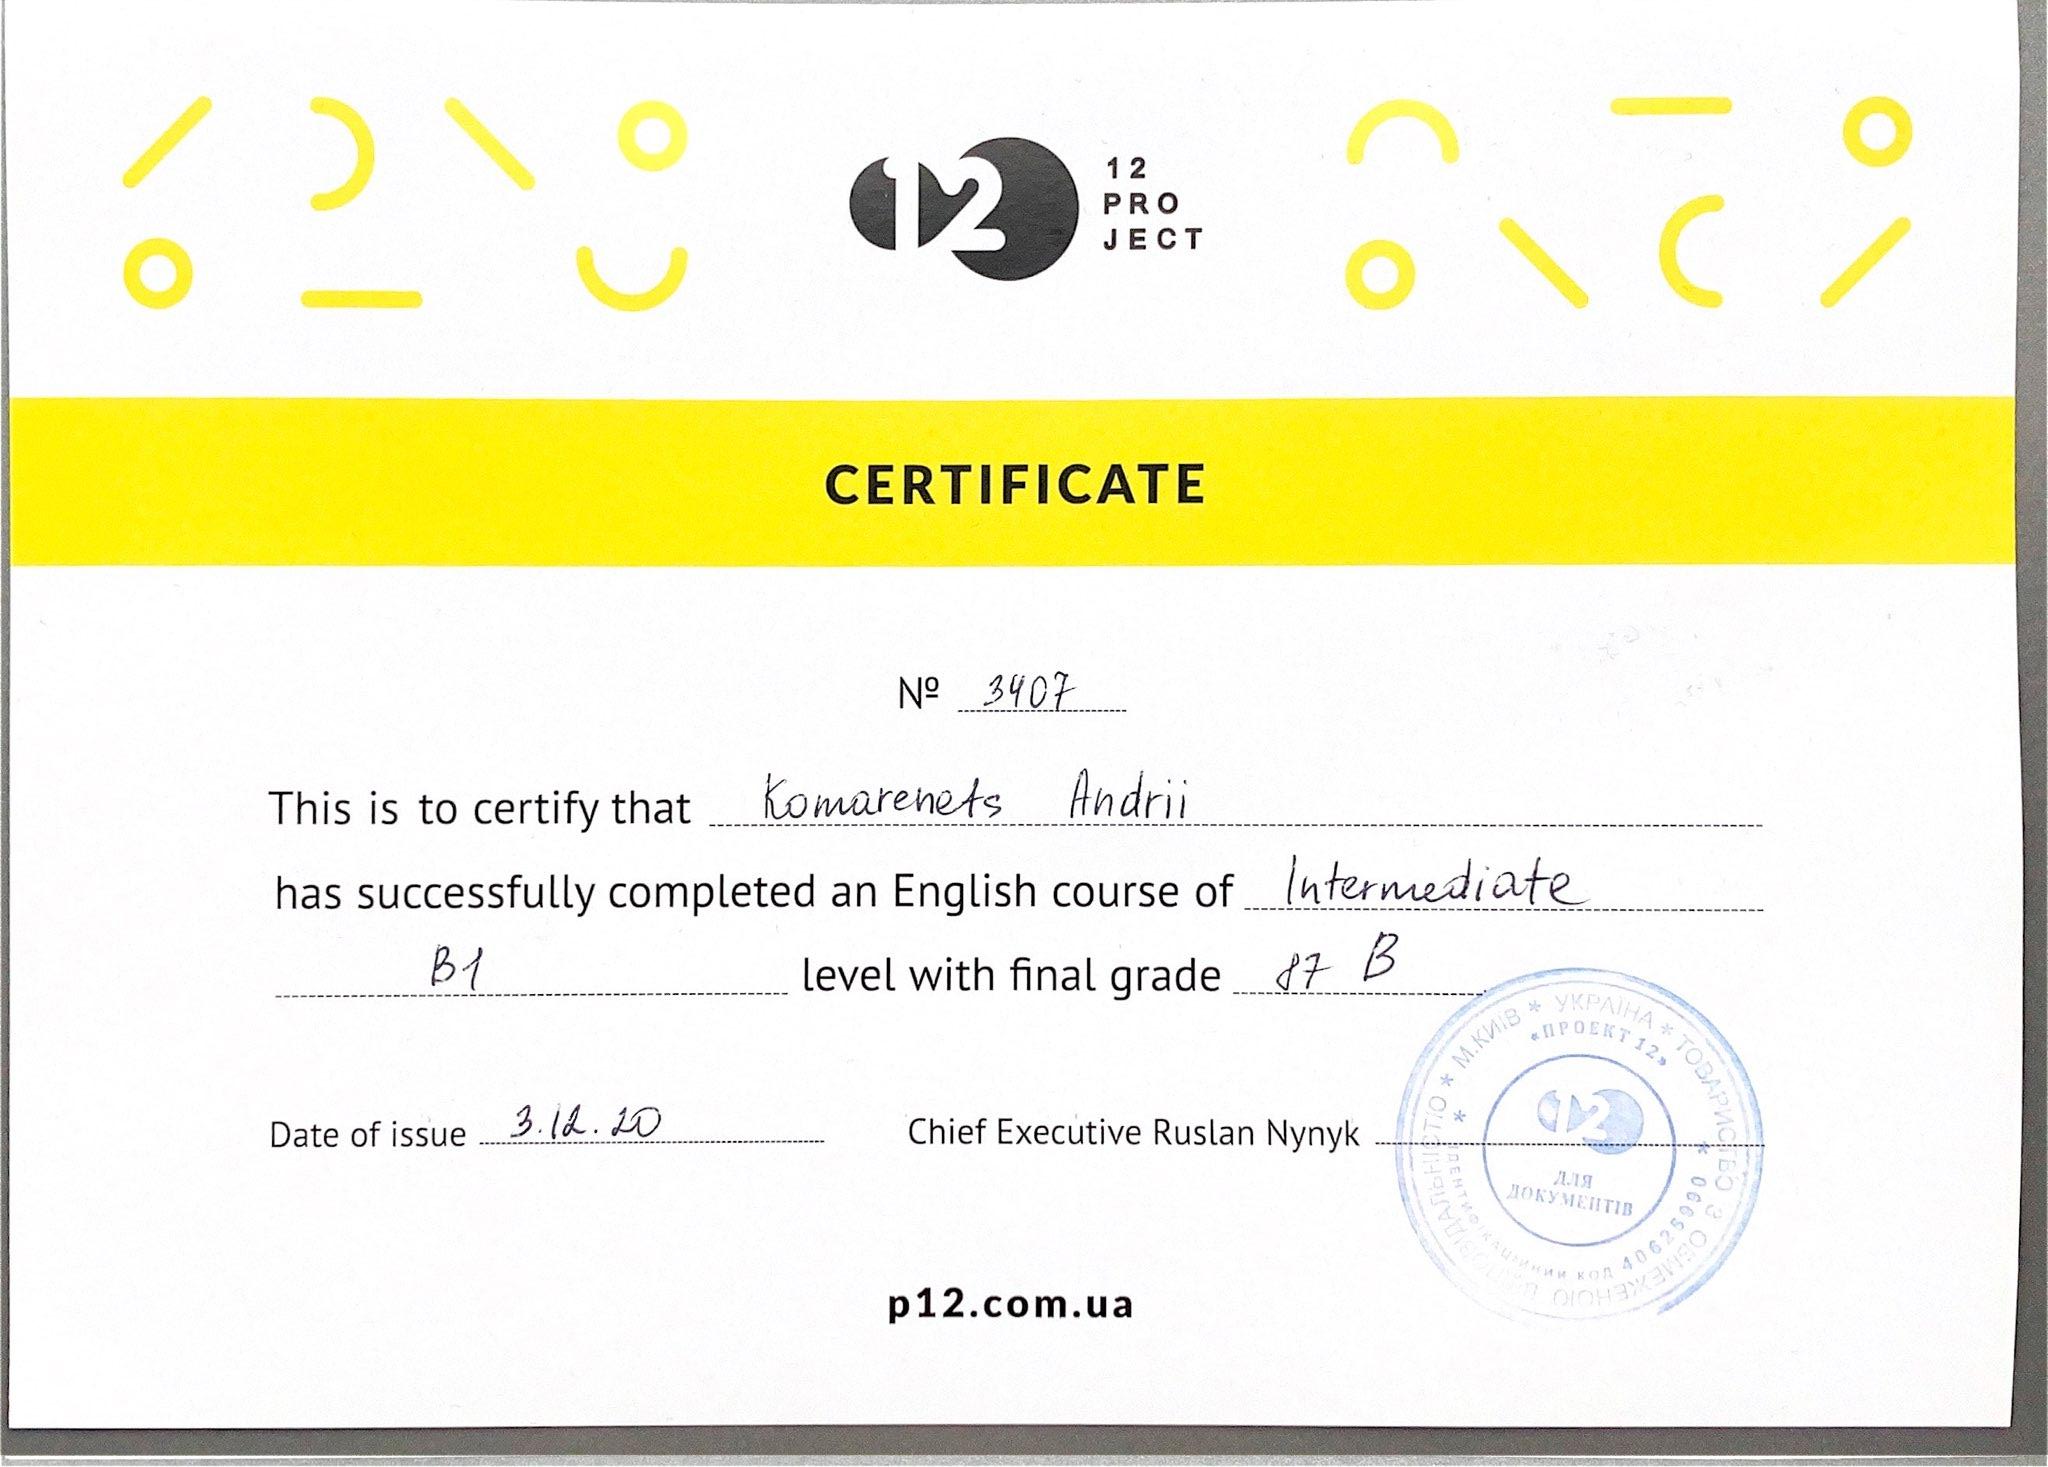 12
12
PRO
JECT
CERTIFICATE
Nº 3407
This is to certify that Komarenets Andrii
has successfully completed an English course of Intermediate
B1 level with final grade 87 B
Date of issue 3.12.20
Chief Executive Ruslan Nynyk
* М.КИЇВ * УКРАЇНА * ТОВАРИСТВО З ОБМЕЖЕНОЮ ВІДПОВІДАЛЬНІСТЮ
«ПРОЕКТ 12» * ІДЕНТИФІКАЦІЙНИЙ КОД 40625990 *
12
ДЛЯ
ДОКУМЕНТІВ
p12.com.ua